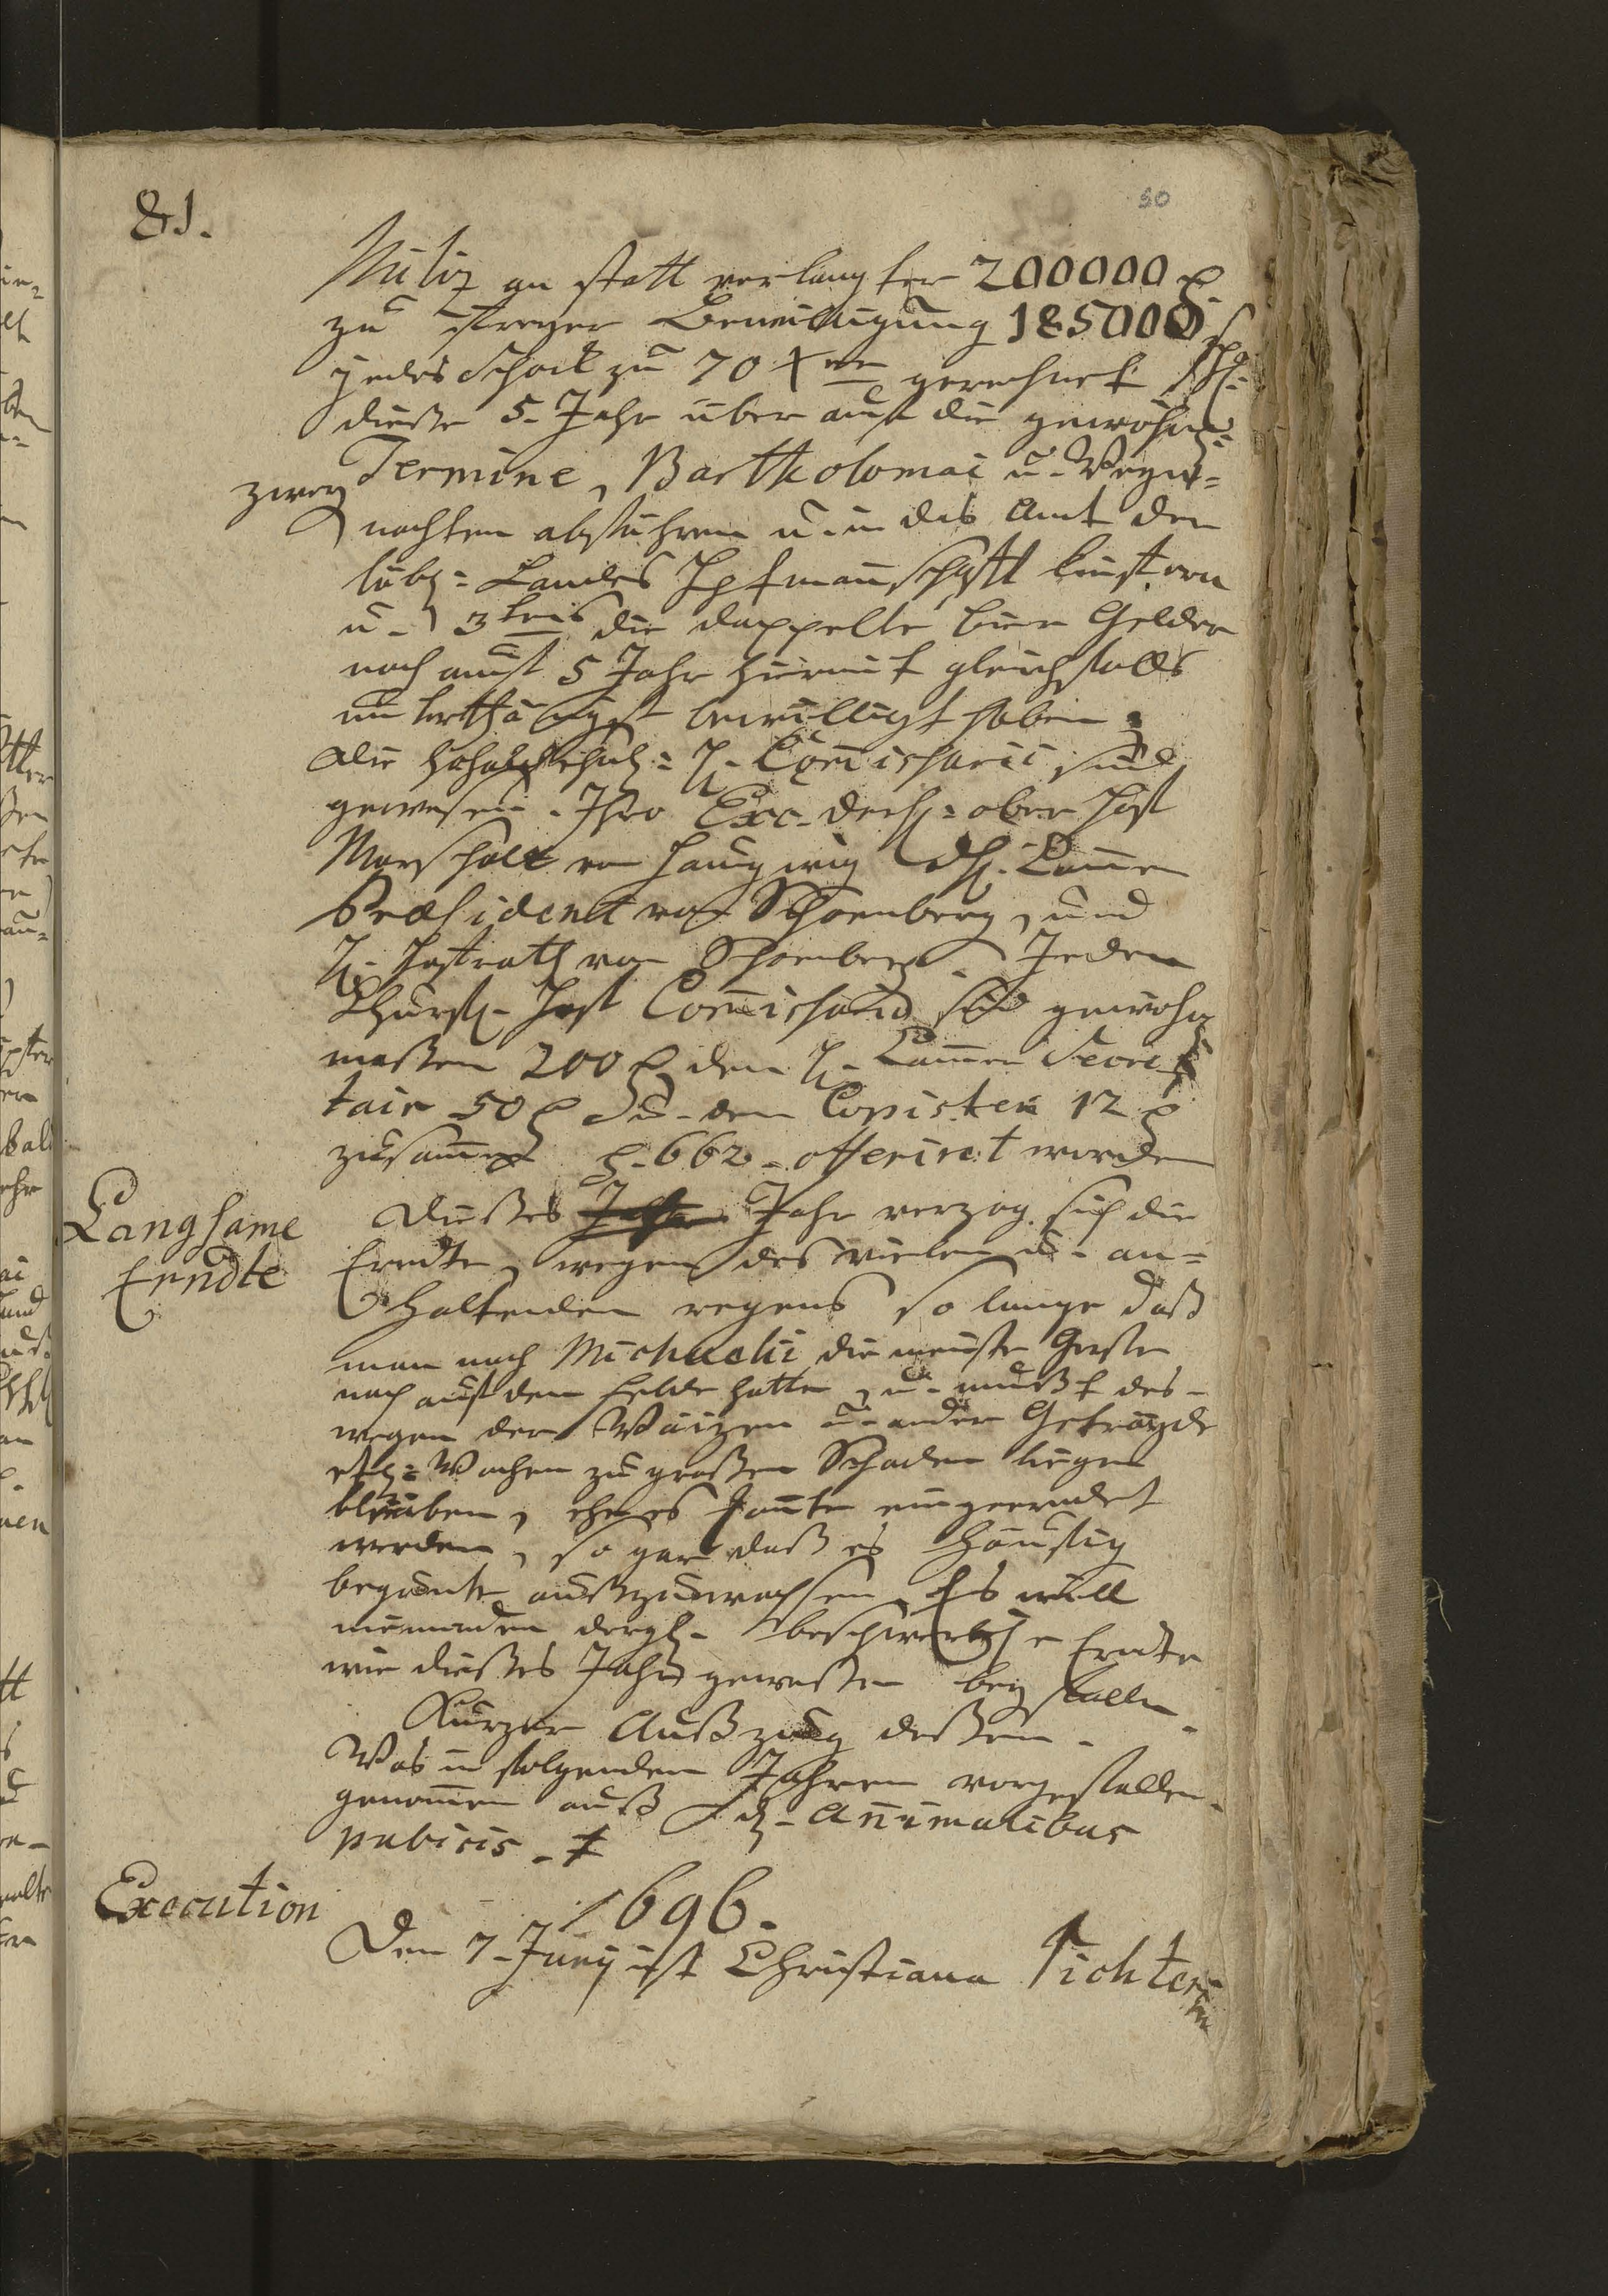 81.
50
Militz an statt verlangter 200000
zu freyer Bewilligung 185000
jedes Schock zu 70 Xrn gerechnet
dieße 5. Jahr über auf die gewöhnl:
zwey Termine, Bartholomai u. Weyh=
nachten abführen u. in das Amt der
löbl: Landes Hptmannschafft liefern
u. 3tens die doppelte bier Gelder
noch auf 5 Jahr hiermit gleichfalls
unterthänigst bewilligt haben.
Die H. Commissarii sind
gewesen. Ihro Exc. der H: ober Hoff
Marschall von Haugwitz, H. Cammer
Præsident von Schoenberg, und
H. Hofrath von Schoenberg. Jeden
Churfl. Hoff Commissario sind gewohnter
maßen 200 den H. Cammer Secre
tair 50 u. den Copisten 12
zusammen 662. offeriret worden
Langsame
Erndte
Dießes Jahr verzog sich die
Erndte, wegen des vielen u. an=
haltenden regens so lange daß
man nach Michaelii die meiste Gerste
noch auf dem felde hatte, u. mußt des=
wegen der Waizen u. ander Getrayde
etl: Wochen zu großen Schaden liegen
bleiben, ehe es konte eingeerndet
werden, so gar daß es häuffig
begunte außzuwachsen. Es will
niemanden dergl. beschwerliche Erndte
wie dießes Jahr geweßen beyfallen.
Kurzer Außzug deßen.
Was in folgenden Jahren vorgefallen.
genommen auß Annimalibus
pubicis.
1696.
Execution
Den 7. Junij ist Christiana Richterin